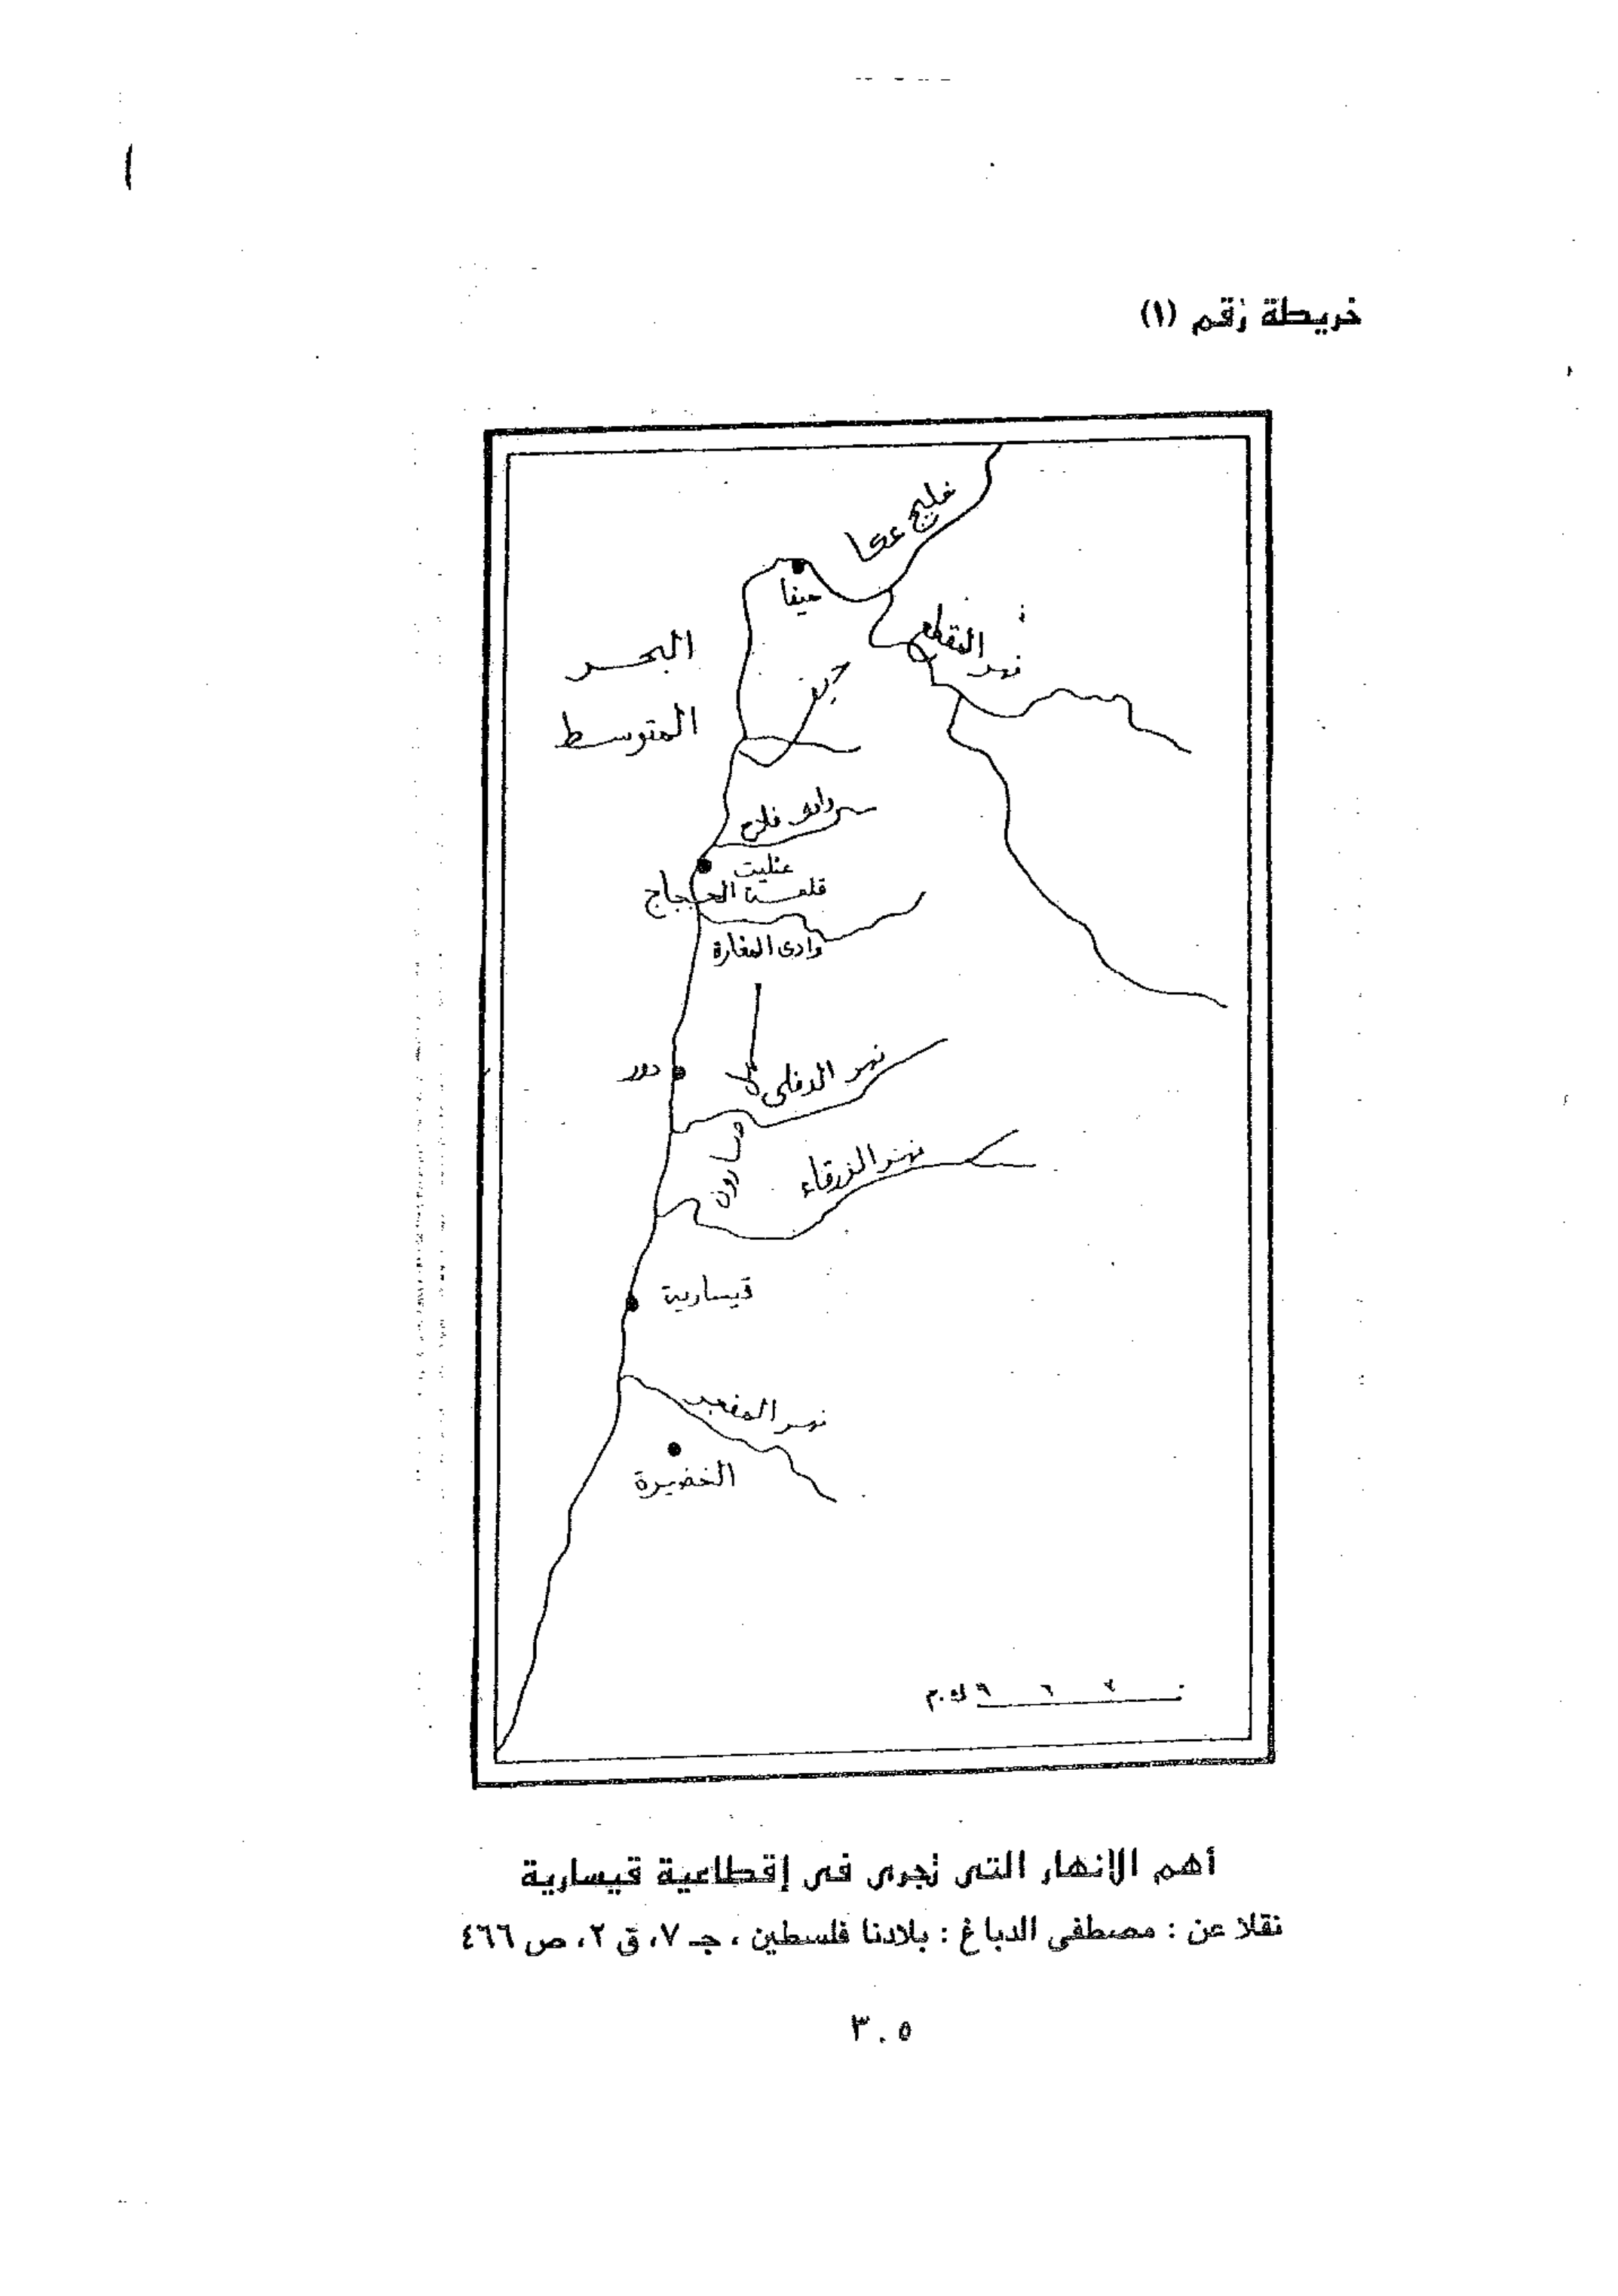 خريطة رقم (١)
خليج عكا
حيفا
نهر المقطع
البحر
المتوسط
جبل
وادى فلاح
عثليت
قلعة الحجاج
وادى المغارة
دور
نهر الدفلى
صارون
نهر الزرقاء
قيسارية
نهر المفجر
الخضيرة
٠ ٣ ٦ ٩ ك.م
أهم الانهار التى تجرى فى إقطاعية قيسارية
نقلا عن : مصطفى الدباغ : بلادنا فلسطين ، جـ ٧، ق ٢، ص ٤٦٦
٣٠٥